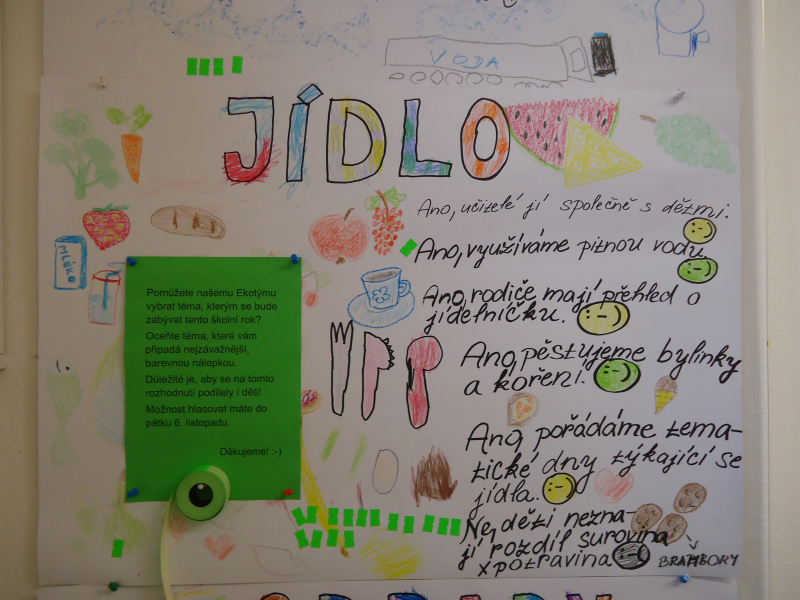 VODA
JÍDLO
Ano, učitelé jí společně s dětmi.
Ano, využíváme pitnou vodu.
mléko
Ano, rodiče mají přehled o
jídelníčku.
Ano, pěstujeme bylinky
a koření.
Ano, pořádáme tema-
tické dny týkající se
jídla.
Ne, děti nezna-
jí rozdíl surovina
x potravina
BRAMBORY
Pomůžete našemu Ekotýmu
vybrat téma, kterým se bude
zabývat tento školní rok?
Oceňte téma, které vám
připadá nejzávažnější,
barevnou nálepkou.
Důležité je, aby se na tomto
rozhodnutí podílely i děti!
Možnost hlasovat máte do
pátku 6. listopadu.
Děkujeme! :-)